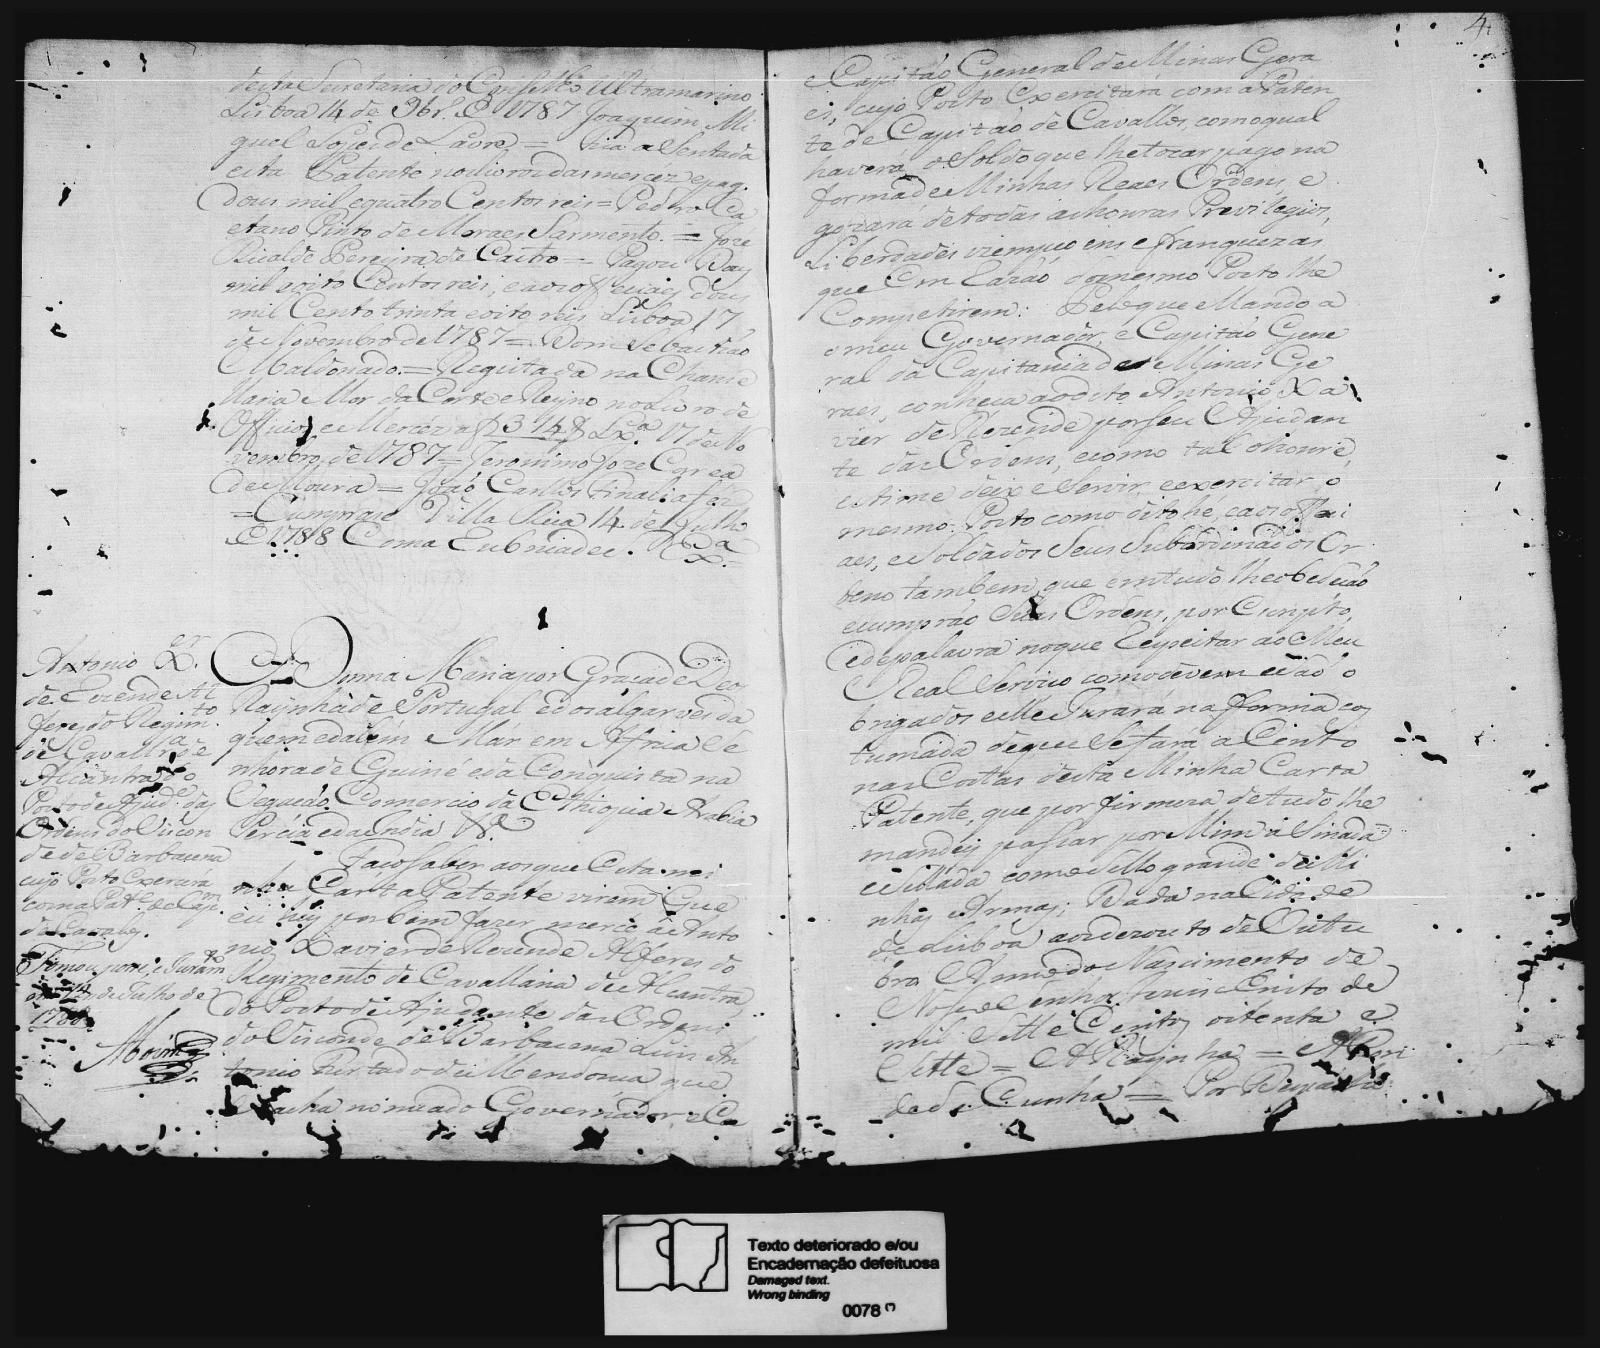 desta Secretaria do Conselho Ultramarino
Lisboa 14 de 9br.º de 1787 Joaquim Mi
guel Lopes de Lavre = Fica aSentada
esta Patente no livro das merces epag.
Dous mil equatro Centos reis = Pedro Ca
etano Pinto de Moraes Sarmento. = Joze
Ricalde Pereira de Castro = Pagou Dous
mil oito Centos reis, eaos officiaes Dous
mil Cento trinta eoito reis Lisboa 17
de Novembro de 1787 = Dom Sebastiao
Maldonado. = Registada na Chance
laria Mor da Corte e Reyno no Livro de
Officios e Merces a f 314 Lx.ª 17 de No
vembro, de 1787 = Jeronimo Joze Correa
de Moura = João Carlos
= Cumprase Villa Rica 14 de Julho
de 1788 Coma Rubrica de
Antonio X.er
de Rezende Al
feres do Regim.to
de Cavallr.ª e
Alcantra do
Posto de Ajud.e das
Ordens do Viscon
de de Barbacena
cujo Posto Exercerá
com a Pat.e de Cap.m
de Cavalos.
Tomou posse, e Juram.to
em 14 de Julho de
1788
Donna Maria por Graça de Deos
Raynha de Portugal edos algarves da
quem edalém Mar em Africa Se
nhora de Guiné e da Conquista na
vegação Comercio da Ethiopia Arabia
Percia eda India &
Faço Saber aos que Esta mi
nha Carta Patente virem Que
eu hey por bem fazer merce a Anto
nio Xavier de Rezende Alferes do
Regimento de Cavallaria de Alcantra,
do Posto de Ajudante das Ordens
do Visconde de Barbacena Luis An
tonio Furtado de Mendonca que
Se acha nomeado Governador, e Ca
4
e Capitão General de Minas Gera
es, cujo Posto Exercitará com a Paten
te de Capitão de Cavallos, com o qual
haverá o Soldo que lhe tocar pago na
forma de Minhas Reaes Ordens, e
gozará de todas as honras Previlegios,
Liberdades izempçoens e franquezas
que Em razão do mesmo Posto lhe
Competirem: Pelo que Mando a
o meu Governador, e Capitão Gene
ral da Capitania de Minas Ge
raes, conheça ao dito Antonio Xa
vier de Rezende por seu Ajudan
te das Ordens, e como tal o honre,
estime deixe Servir, e exercitar o
mesmo Posto como dito he, e aos Offici
aes, e Soldados Seus Subordinados Or
deno tambem que em tudo lhe obedeção
e cumprão Suas Ordens, por Escripto,
e de palavra no que Respeitar ao Meu
Real Serviço como devem e são o
brigados e elle Jurará na forma cos
tumada de que Se fará aSento
nas Costas desta Minha Carta
Patente, que por firmeza de tudo lhe
mandey passar por Mim aSinada
e Sellada com o Sello grande de Mi
nhas Armas; Dada na Cidade
de Lisboa aos dezouto de Outu
bro Anno do Nascimento de
Nosso Senhor Jesus Cristo de
mil e Sette Centos oitenta e
Sette = A Raynha =
de da Cunha = Por
Texto deteriorado e/ou
Encadernação defeituosa
Damaged text.
Wrong binding
0078 (*)